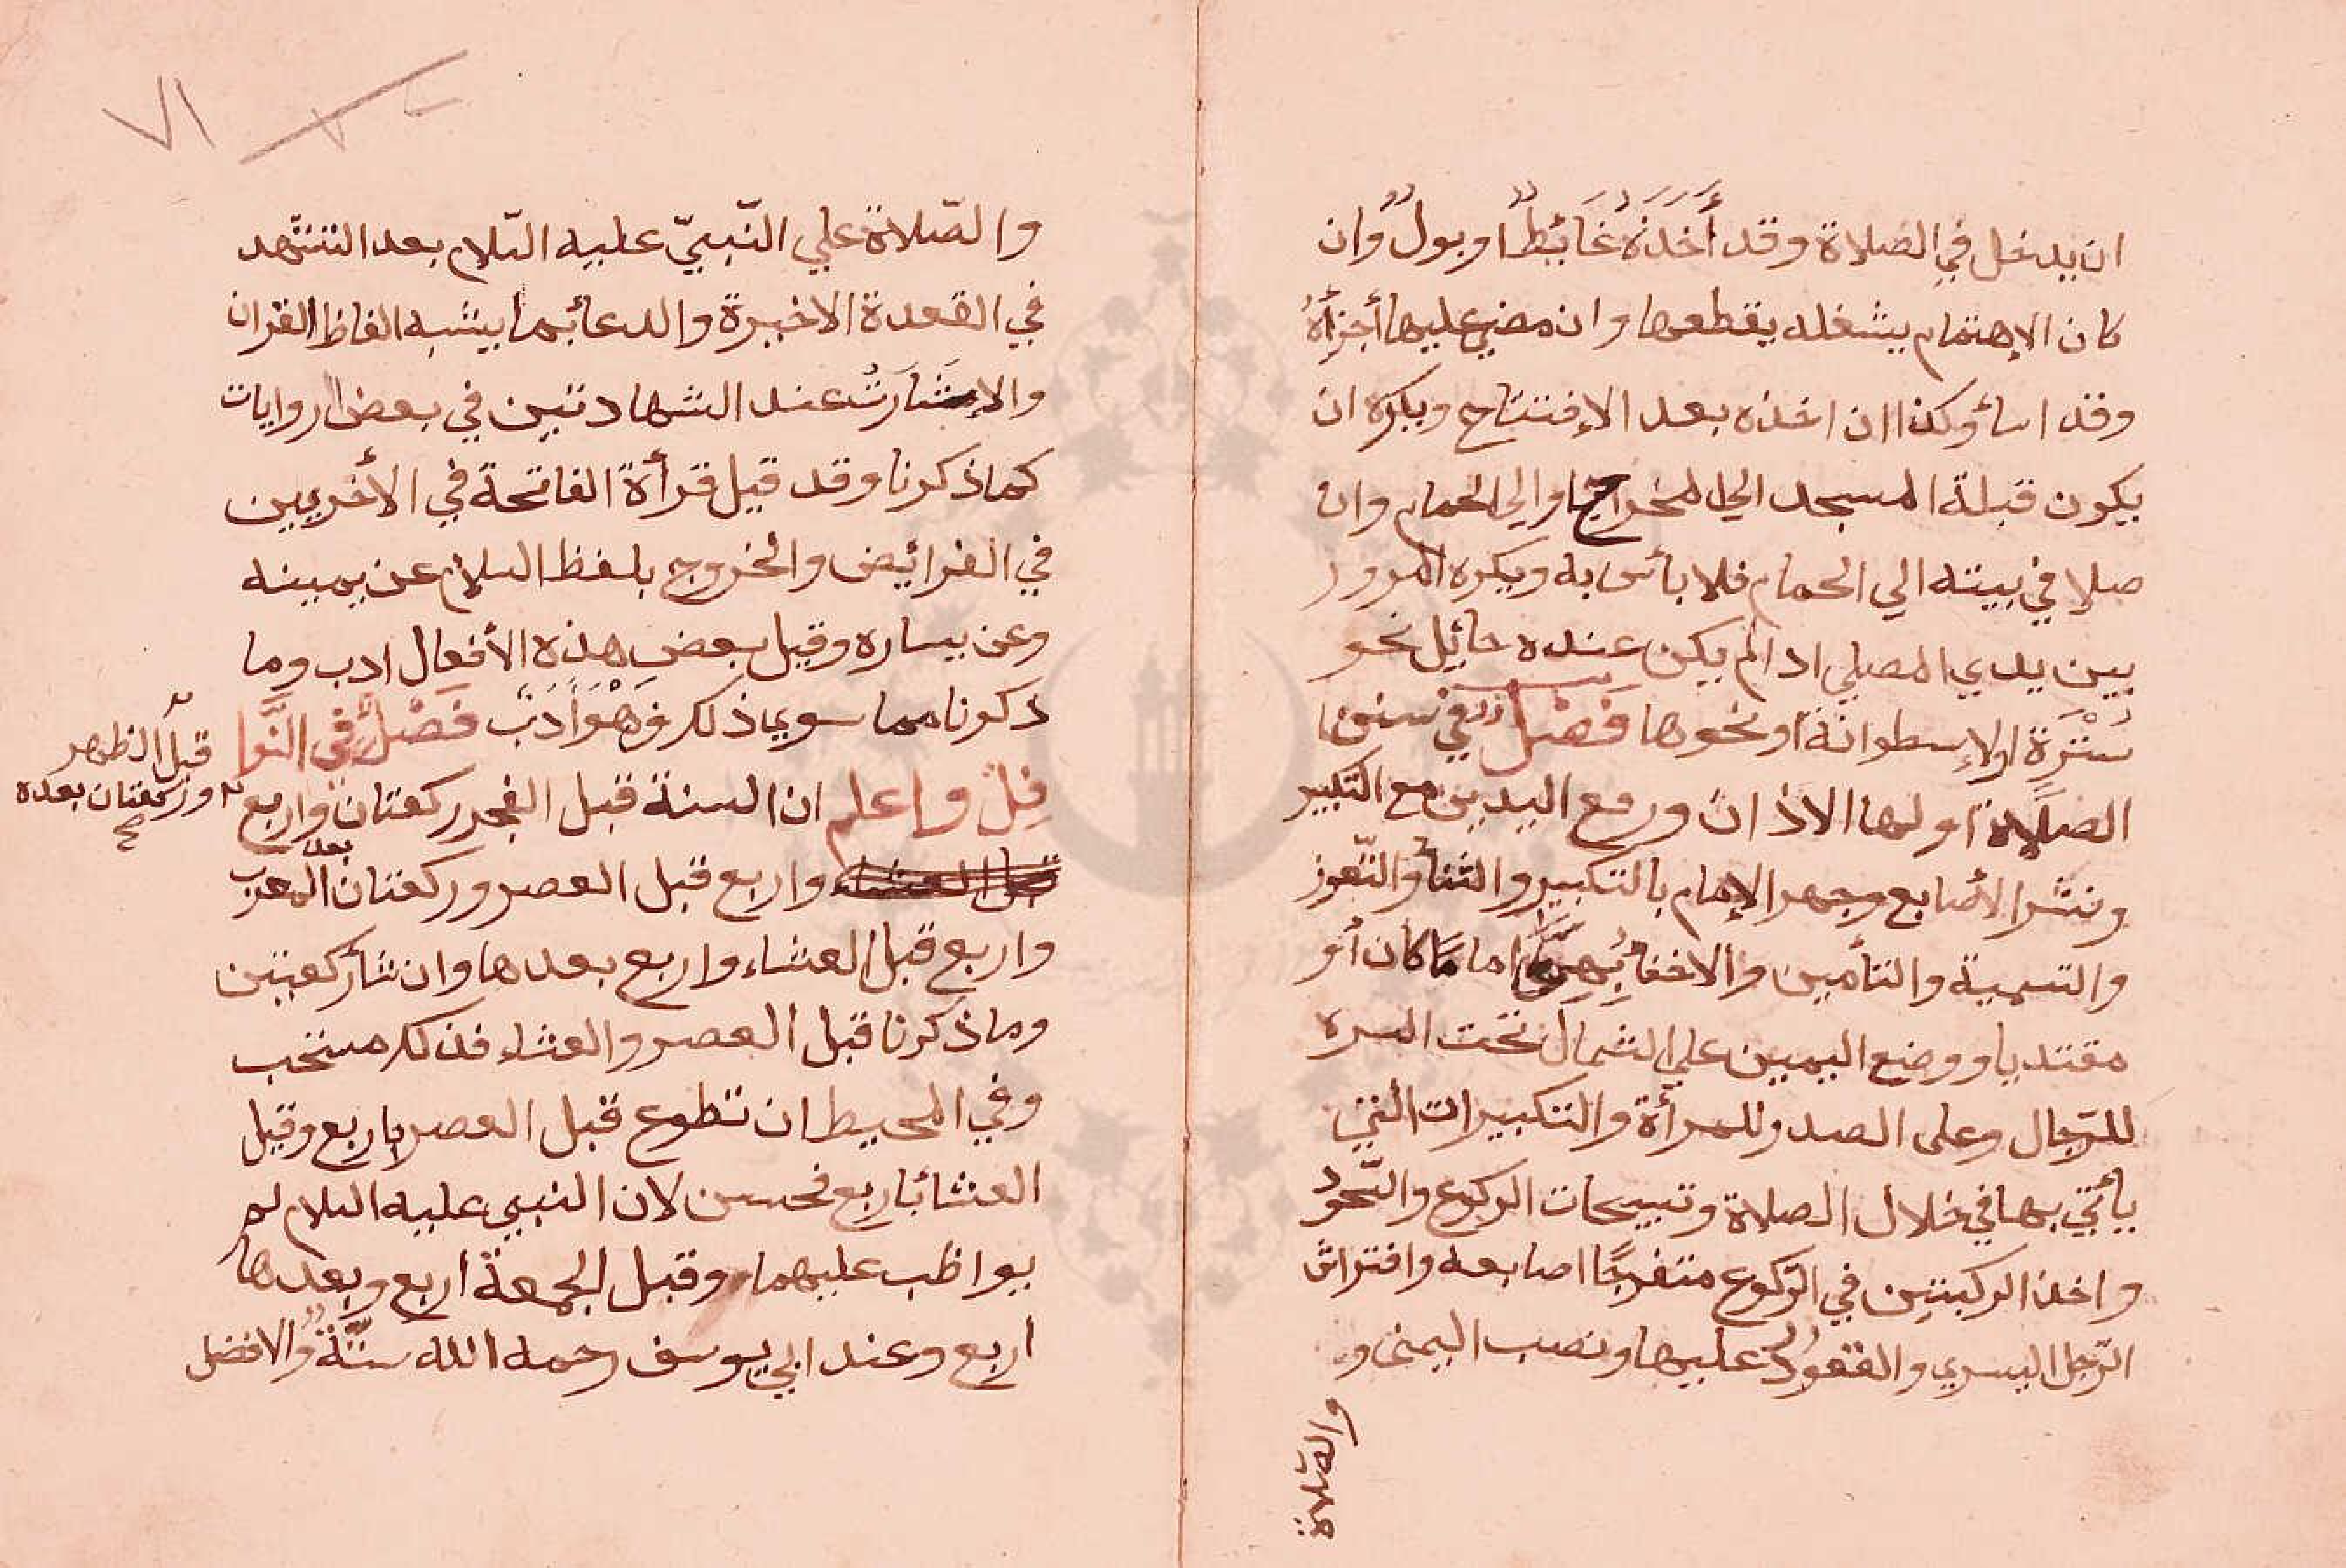 ان يدخل في الصلاة وقد أَخَذَهُ غَائِطٌ او بولٌ وان
كان الاهتمام يشغله يقطعها وان مضي عليها أجزأهُ
وقد اسأ وكذا ان اخذه بعد الإفتتاح ويكره ان
يكون قبلة المسجد الي المخرج او الي الحمام وان
صلا في بيته الي الحمام فلا بأس به ويكره المرور
بين يدي المصلي اذا لم يكن عنده حائل نحو
سُتْرَة او لإسطوانة او نحوها فَصْل في سنن
الصلاة اولها الاذان ورفع اليدين مع التكبير
ونشر الأصابع وجهر الإمام بالتكبير والثنأ والتّعوذ
والتسمية والتأمين والاخفأ بِهِنَّ اماما كان أو
مقتديا ووضع اليمين علي الشمال تحت السره
للرّجال وعلى الصدر للمرأة والتكبيرات التي
يأتي بها في خلال الصلاة وتسبيحات الركوع والسّجود
واخذ الركبتين في الرّكوع متفرجًا اصابعه وافتراش
الرّجل اليسري والقعودُ عليها ونصب اليمنى و
والصّلاة
٧١
والصّلاة علي النّبيّ عليه السّلام بعد التشهّد
في القعدة الاخيرة والدعائ بما يشبه الفاظ القران
والإشَارَتُ عند الشهادتين في بعض الروايات
كما ذكرنا وقد قيل قرأة الفاتحة في الأخريين
في الفرائض والخروج بلفظ السلام عن يمينه
وعن يساره وقيل بعض هذه الأفعال ادب وما
ذكرنا مما سوي ذلك فَهْوَ أَدَبٌ فَصْلٌ في النَّوا
فِلْ واعلم ان السنة قبل الفجر ركعتان واربع
قبل الظهر
وركعتان بعده
صح
واربع قبل العصر وركعتان بعد المغرب
واربع قبل العشاء واربع بعدها وان شأ ركعتين
وما ذكرنا قبل العصر والعشاء فذلك مستحب
وفي المحيط ان تطوع قبل العصر باربع وقبل
العشائ باربع فحسن لان النبي عليه السلام لم
يواظب عليهما وقبل الجمعة اربع وبعدها
اربع وعند ابي يوسف رحمه الله ستّةٌ والافضل